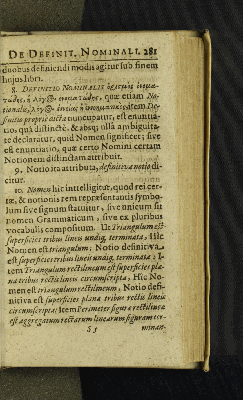 DE DEFINIT. NOMINALI. 281
duobus definiendi modis agitur sub finem
hujus libri.
8. DEFINITIO NOMINALIS
quæ etiam No-
item De-
finitio proprie dicta nuncupatur, est enuntia-
tio, quâ distinctè, & absq; ullâ ambiguita-
te declaratur, quid Nomen significet; sive
est enuntiatio, quæ certo Nomini certam
Notionem distinctam attribuit.
9. Notio ita attributa, definitiva notio di-
citur.
10. Nomen hic intelligitur, quod rei cer-
tæ, & notionis rem repræsentantis symbo-
lum sive signum statuitur, sive unicum sit
nomen Grammaticum, sive ex pluribus
vocabulis compositum. Ut Triangulum est
superficies tribus lineis undiq; terminata; Hic
Nomen est triangulum; Notio definitiva
est superficies tribus lineis undiq; terminata: I-
tem Triangulum rectilineum est superficies pla-
na tribus rectis lineis circumscripta; Hic No-
men est triangulum rectilineum, Notio defi-
nitiva est superficies plana tribus rectis lineis
circumscripta: Item Perimeter figuræ rectilineæ
est aggregatum rectarum linearum figuram ter-
S 5 minan-